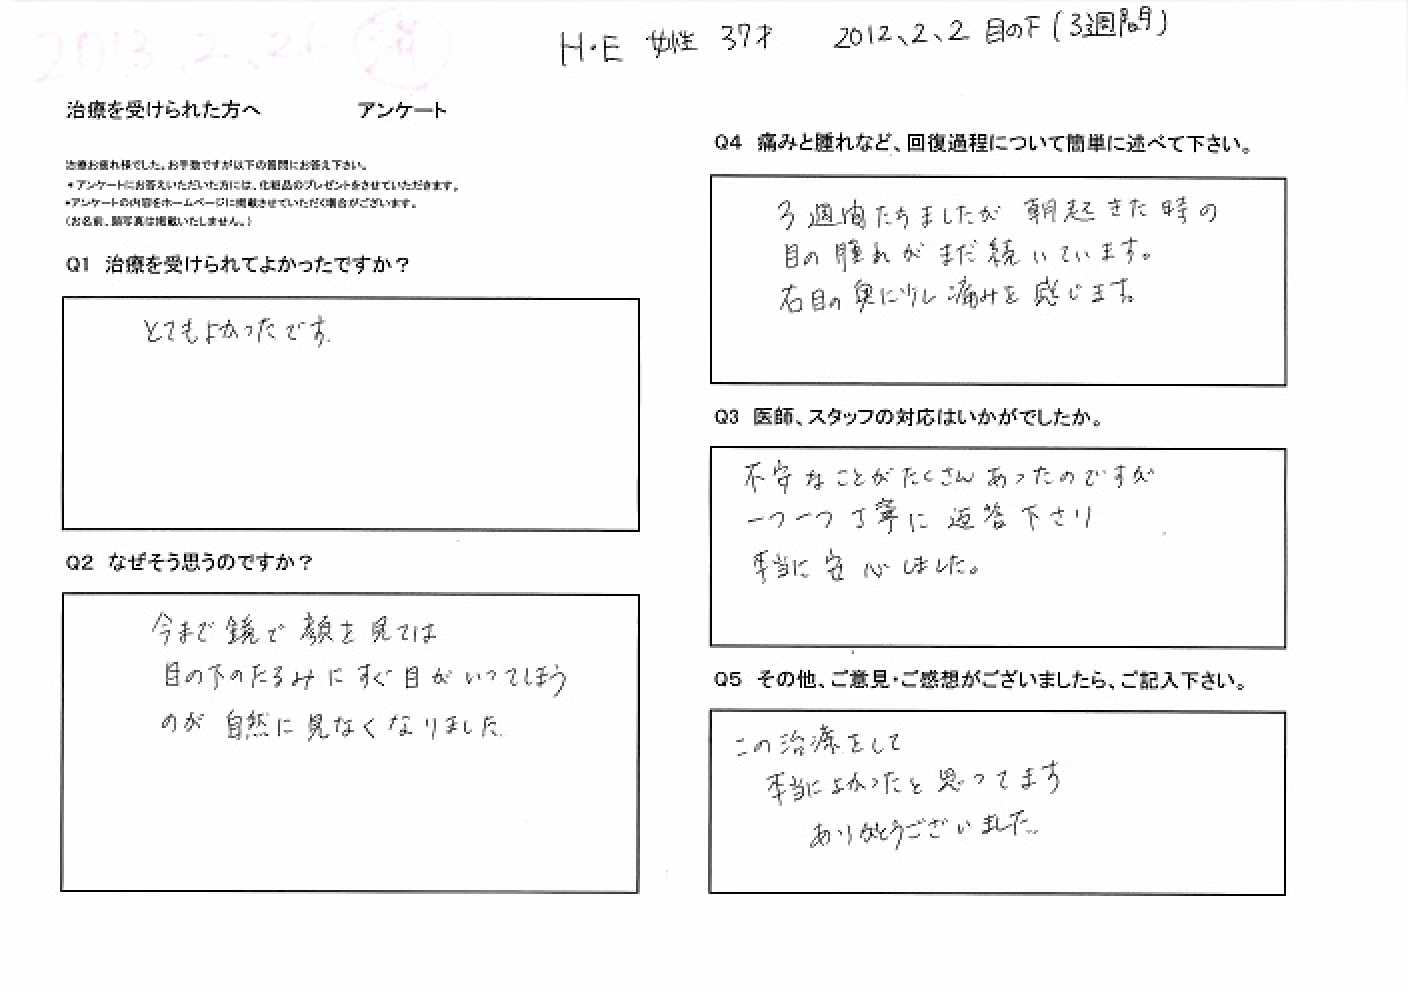 2013.2.26
H・E 女性 37才 2012、2、2 目の下(3週間)
治療を受けられた方へ アンケート
治療お疲れ様でした。お手数ですが以下の質問にお答え下さい。
*アンケートにお答えいただいた方には、化粧品のプレゼントをさせていただきます。
*アンケートの内容をホームページに掲載させていただく場合がございます。
(お名前、顔写真は掲載いたしません。)
Q1 治療を受けられてよかったですか?
とてもよかったです。
Q2 なぜそう思うのですか?
今まで鏡で顔を見ては
目の下のたるみにすぐ目がいってしまう
のが自然に見なくなりました
Q4 痛みと腫れなど、回復過程について簡単に述べて下さい。
3週間たちましたが朝起きた時の
目の腫れがまだ続いています。
右目の奥に少し痛みを感じます。
Q3 医師、スタッフの対応はいかがでしたか。
不安なことがたくさんあったのですが
一つ一つ丁寧に返答下さり
本当に安心しました。
Q5 その他、ご意見・ご感想がございましたら、ご記入下さい。
この治療をして
本当によかったと思ってます
ありがとうございました。